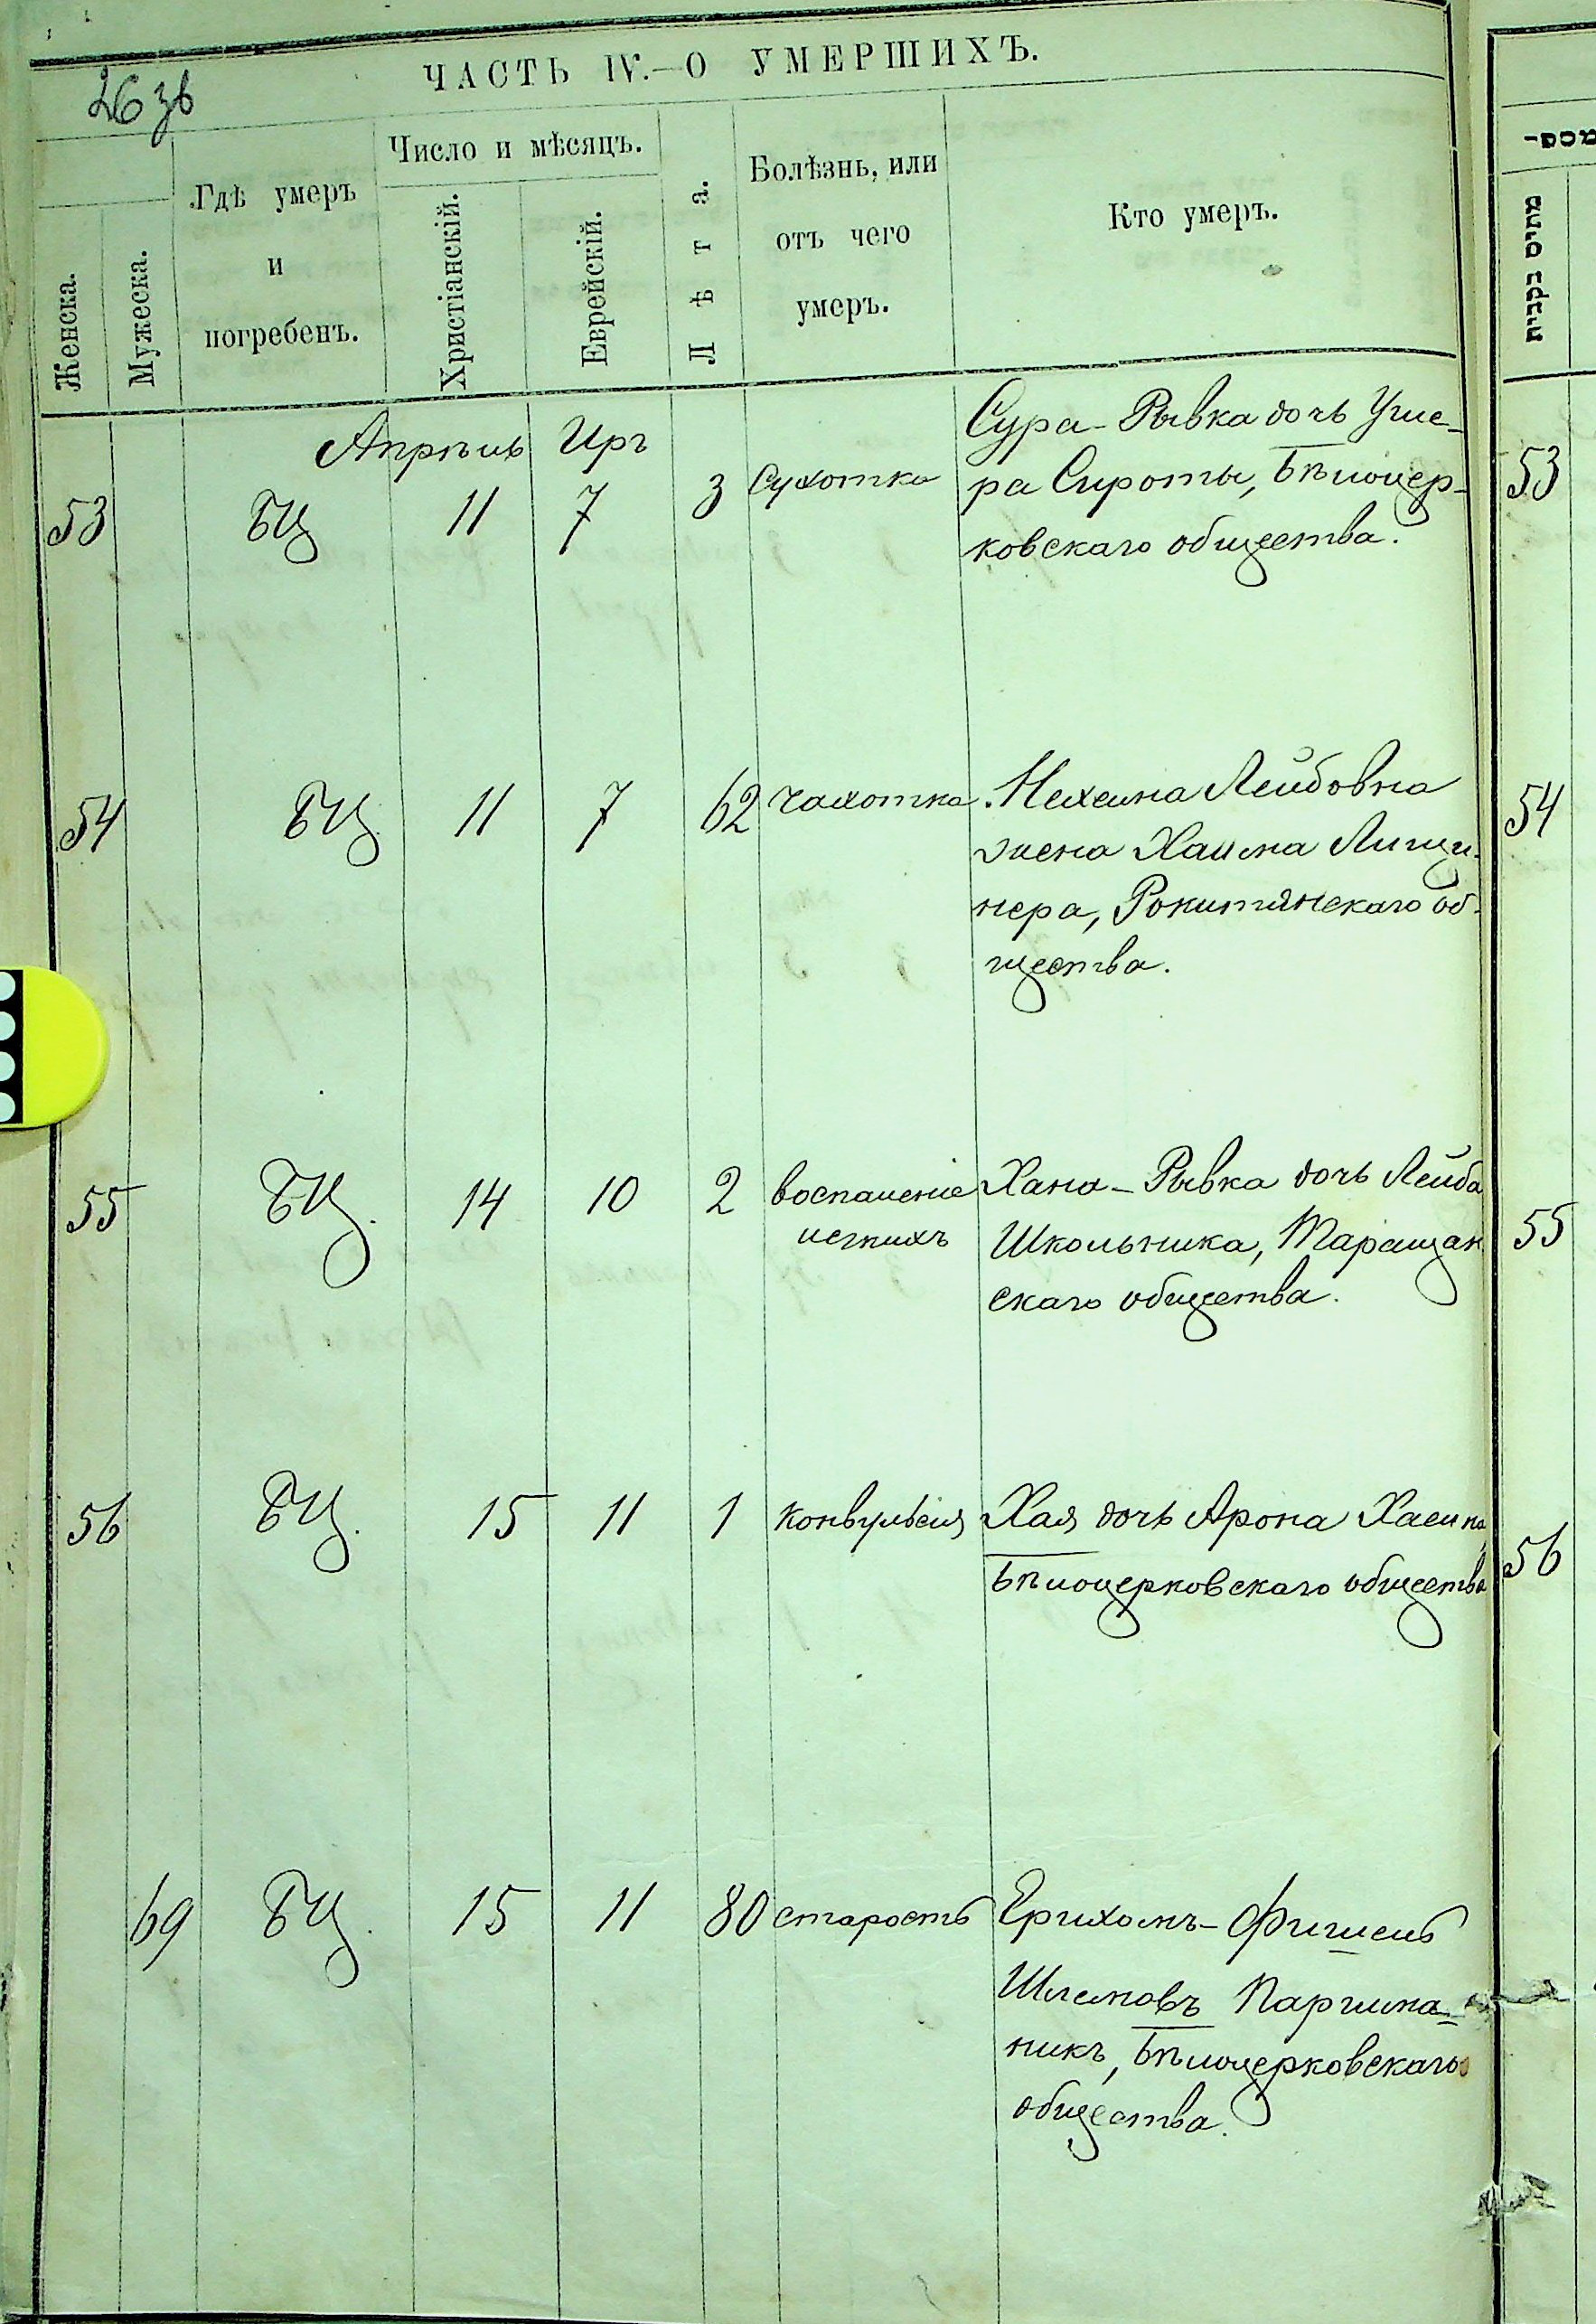 26 зв
ЧАСТЬ IV.—О УМЕРШИХЪ.
Женска.
Мужеска.
Гдѣ умеръ
и
погребенъ.
Число и мѣсяцъ.
Христіанскій.
Еврейскій.
Лѣта.
Болѣзнь, или
отъ чего
умеръ.
Кто умеръ.
Апрѣль Иръ
53 БЦ 11 7 3 Сухотка Сура-Рывка дочь Уше-
ра Сироты, Бѣлоцер-
ковскаго общества.
53
54 БЦ. 11 7 62 чахотка Нехама Лейбовна
жена Хаима
нера, Рокитянскаго об-
щества.
54
55 БЦ. 14 10 2 воспаленіе Хана-Рывка дочь Лейба
легкихъ Школьника, Таращан
скаго общества.
55
56 БЦ. 15 11 1 конвульсія Хая дочь Арона
Бѣлоцерковскаго общества
56
69 БЦ. 15 11 80 старость Ерихомъ-Фишель
Шлемовъ Паргима-
никъ, Бѣлоцерковскаго
общества.